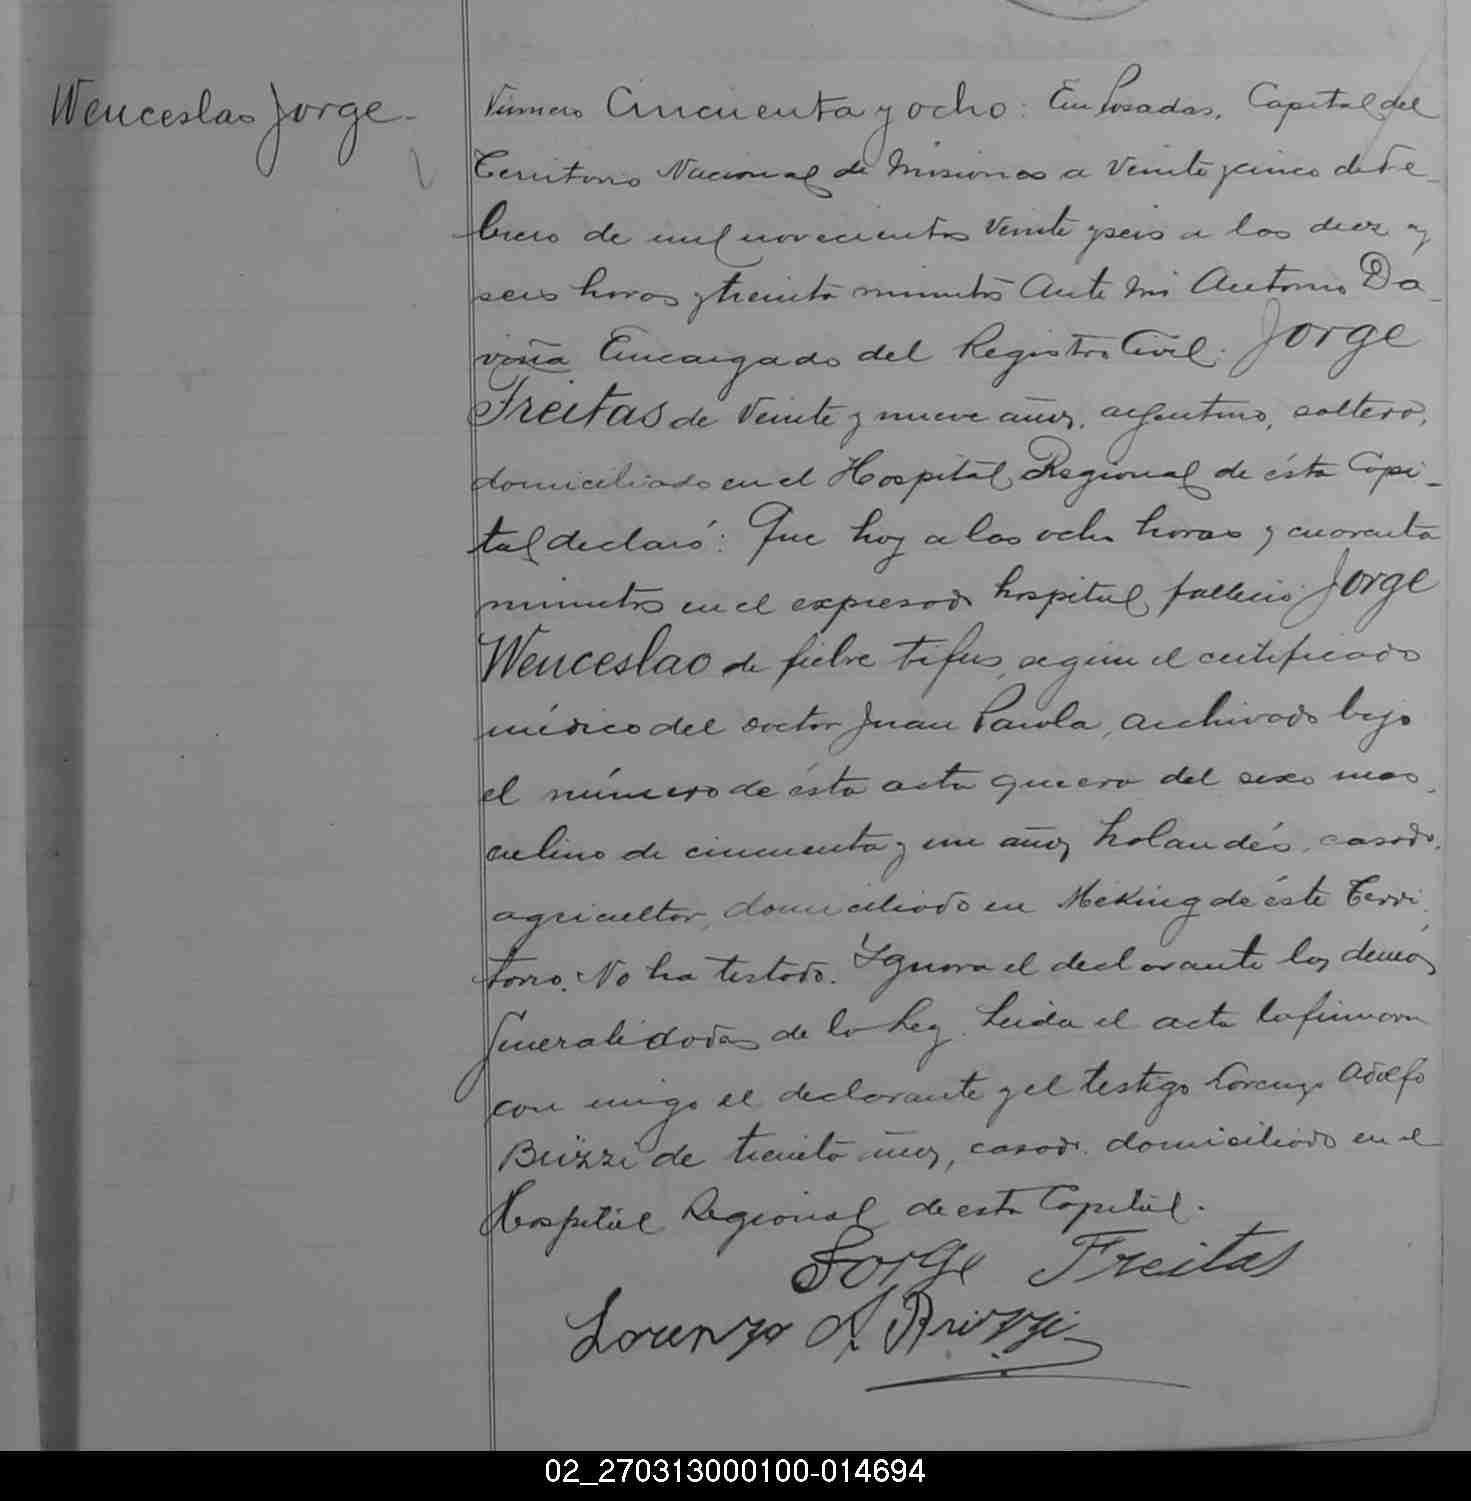 Wenceslao Jorge.-
Número Cincuenta y ocho: En Posadas, Capital del
Territorio Nacional de Misiones a veinte y cinco de Fe-
brero de mil novecientos veinte y seis a las diez y
seis horas y treinta minutos Ante mi Antonio Da-
viña Encargado del Registro Civil: Jorge
Freitas de veinte y nueve años, argentino, soltero,
domiciliado en el Hospital Regional de ésta Capi-
tal declaró: Que hoy a las ocho horas y cuarenta
minutos en el expresado hospital falleció Jorge
Wenceslao de fiebre tifus, según el certificado
médico del doctor Juan Parola, archivado bajo
el número de ésta acta que era del sexo mas-
culino de cincuenta y un años, holandés, casado,
agricultor, domiciliado en Mecking de éste Terri-
torio. No ha testado. Ignora el declarante las demás
generalidades de la ley. Leida el acta la firmaron
con migo el declarante y el testigo Lorenzo Adolfo
Brizzi de treinta años, casado, domiciliado en el
Hospital Regional de esta Capital.
Jorge Freitas
Lorenzo A. Brizzi
02_270313000100-014694